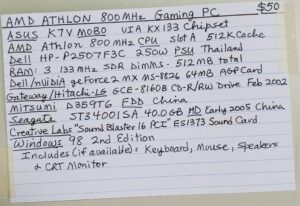 AMD ATHLON 800MHz Gaming PC $50
ASUS K7V MOBO VIA KX133 Chipset
AMD Athlon 800 MHz CPU Slot A 512K Cache
Dell HP-P2507F3C 250W PSU Thailand
RAM: 3 133 MHz SDR DIMMs- 512 MB total
Dell/nVIDIA geForce 2 MX MS-8826 64MB AGP Card
Gateway/Hitachi-LG GCE-8160B CD-R/RW Drive Feb 2002
Mitsumi D359T6 FDD China
Seagate ST340015A 40.0GB HD Early 2005 China
Creative Labs "Sound Blaster 16 PCI" ES1373 Sound Card
Windows 98 2nd Edition
Includes (if available): Keyboard, Mouse, Speakers
& CRT Monitor